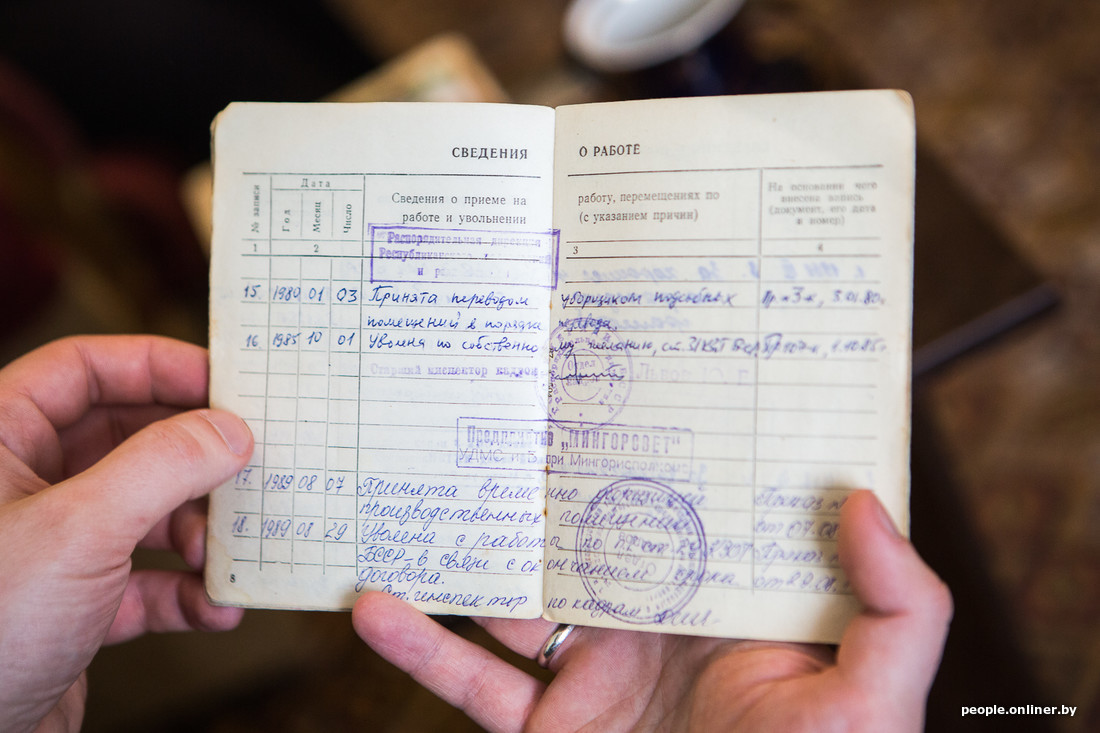 СВЕДЕНИЯ О РАБОТЕ
№ записи
Дата
Год
Месяц
Число
Сведения о приеме на работу, перемещениях по
работе и увольнении (с указанием причин)
На основании чего
внесена запись
(документ, его дата
и номер)
1 2 3 4
Распорядительная дирекция
Республиканского
и
15. 1980 01 03 Принята переводом уборщиком подсобных Пр. "3-к, 3.01.80г.
помещений в порядке перевода.
16. 1985 10 01 Уволена по собственному желанию, ст. КЗоТ
Старший инспектор кадров
Отдел
Предприятие „МИНГОРСВЕТ"
УДМС и Б при Мингорисполкоме
17. 1989 08 07 Принята временно уборщицей Приказ №
производственных помещений от 07.08
18. 1989 08 29 Уволена с работы по ст. 29 КЗОТ Приказ
БССР - в связи с окончанием срока от 29.08
договора.
Ст. инспектор по кадрам
8
people.onliner.by